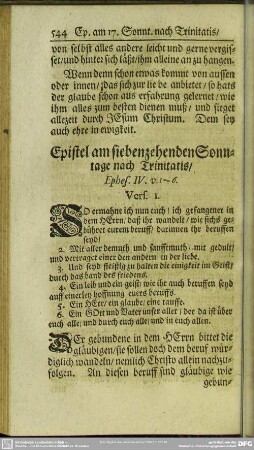 544 Ep. am 17. Sonnt. nach Trinitatis/
von selbst alles andere leicht und gerne vergis-
set/und hinter sich läßt/ihm alleine an zu hangen.
Wenn denn schon etwas kommt von aussen
oder innen/das sich zur liebe anbietet/so hats
der glaube schon aus erfahrung gelernet/wie
ihm alles zum besten dienen muß/und sieget
allezeit durch JEsum Christum. Dem sey
auch ehre in ewigkeit.
Epistel am siebenzehenden Sonn-
tage nach Trinitatis/
Ephes. IV. v. 1-6.
Vers. 1.
SO ermahne ich nun euch/ich gefangener in
dem HErrn/daß ihr wandelt/wie sichs ge-
bühret eurem beruff/darinnen ihr beruffen
seyd/
2. Mit aller demuth und sanfftmuth/mit gedult/
und vertraget einer den andern in der liebe.
3. Und seyd fleißig zu halten die einigkeit im Geist/
durch das band des friedens.
4. Ein leib und ein geist/wie ihr auch beruffen seyd
auff einerley hoffnung eures beruffs.
5. Ein HErr/ein glaube/eine tauffe.
6. Ein GOtt und Vater unser aller/der da ist über
euch alle/und durch euch alle/und in euch allen.
DEr gebundene in dem HErrn bittet die
gläubigen/sie sollen doch dem beruf wür-
diglich wandeln/nemlich Christo allein nachzu-
folgen. An diesen beruff sind gläubige wie
gebun-